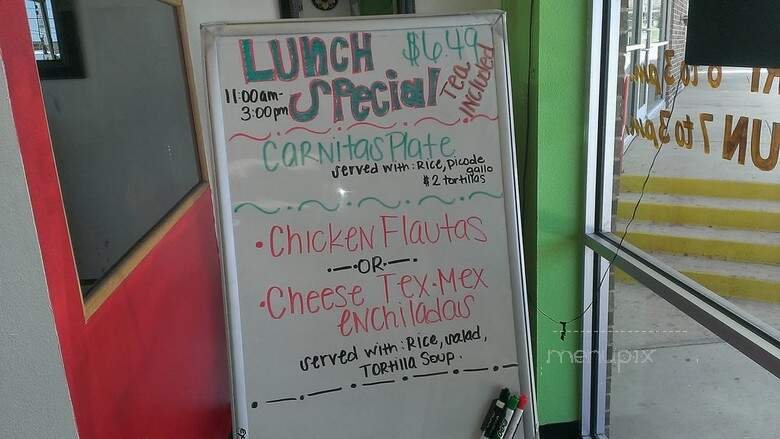 LUNCH $6.49
11:00am-
3:00pm Special Tea Included
Carnitas Plate
served with: Rice, pico de
gallo
& 2 tortillas
• Chicken Flautas
OR
• Cheese Tex-Mex
enchiladas
served with: Rice, salad,
Tortilla Soup.
6 to 3pm
UN 7 to 3pm
menupix